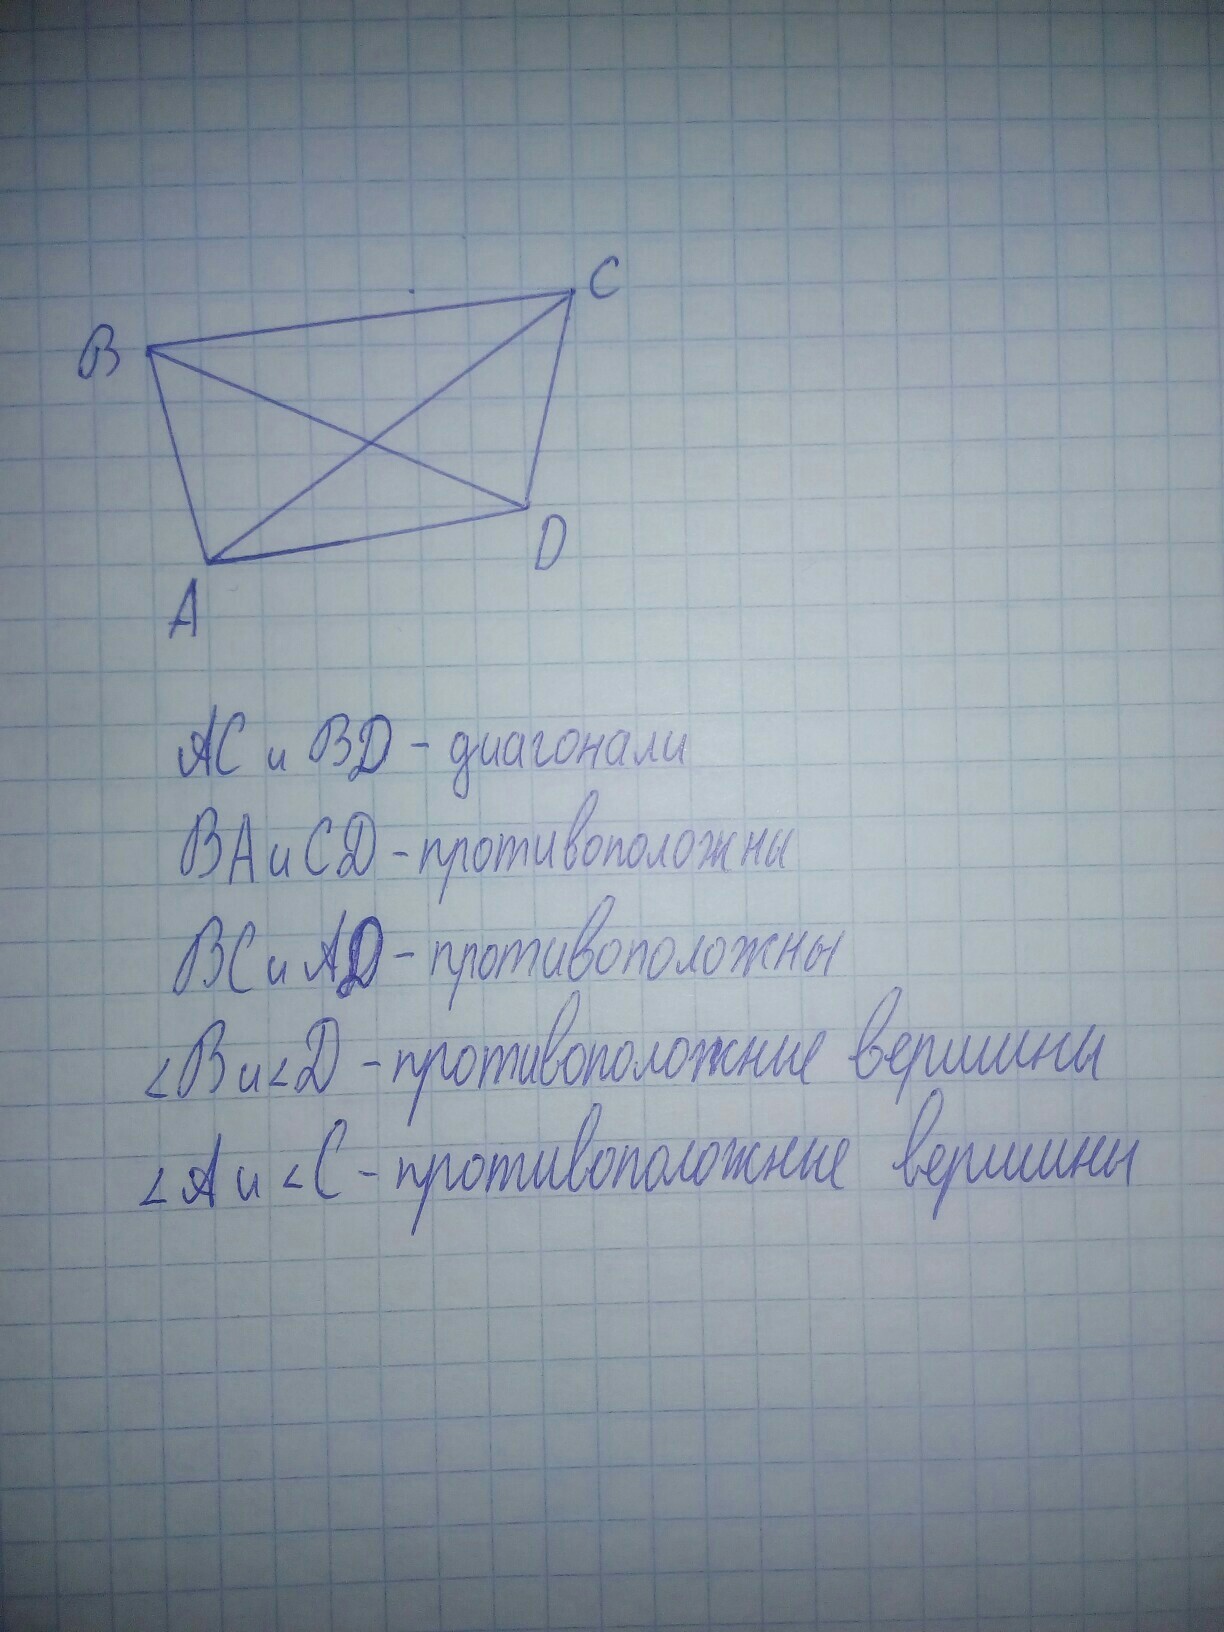 B
C
D
A
AC и BD - диагонали
BA и CD - противоположны
BC и AD - противоположны
<B и <D - противоположные вершины
<A и <C - противоположные вершины